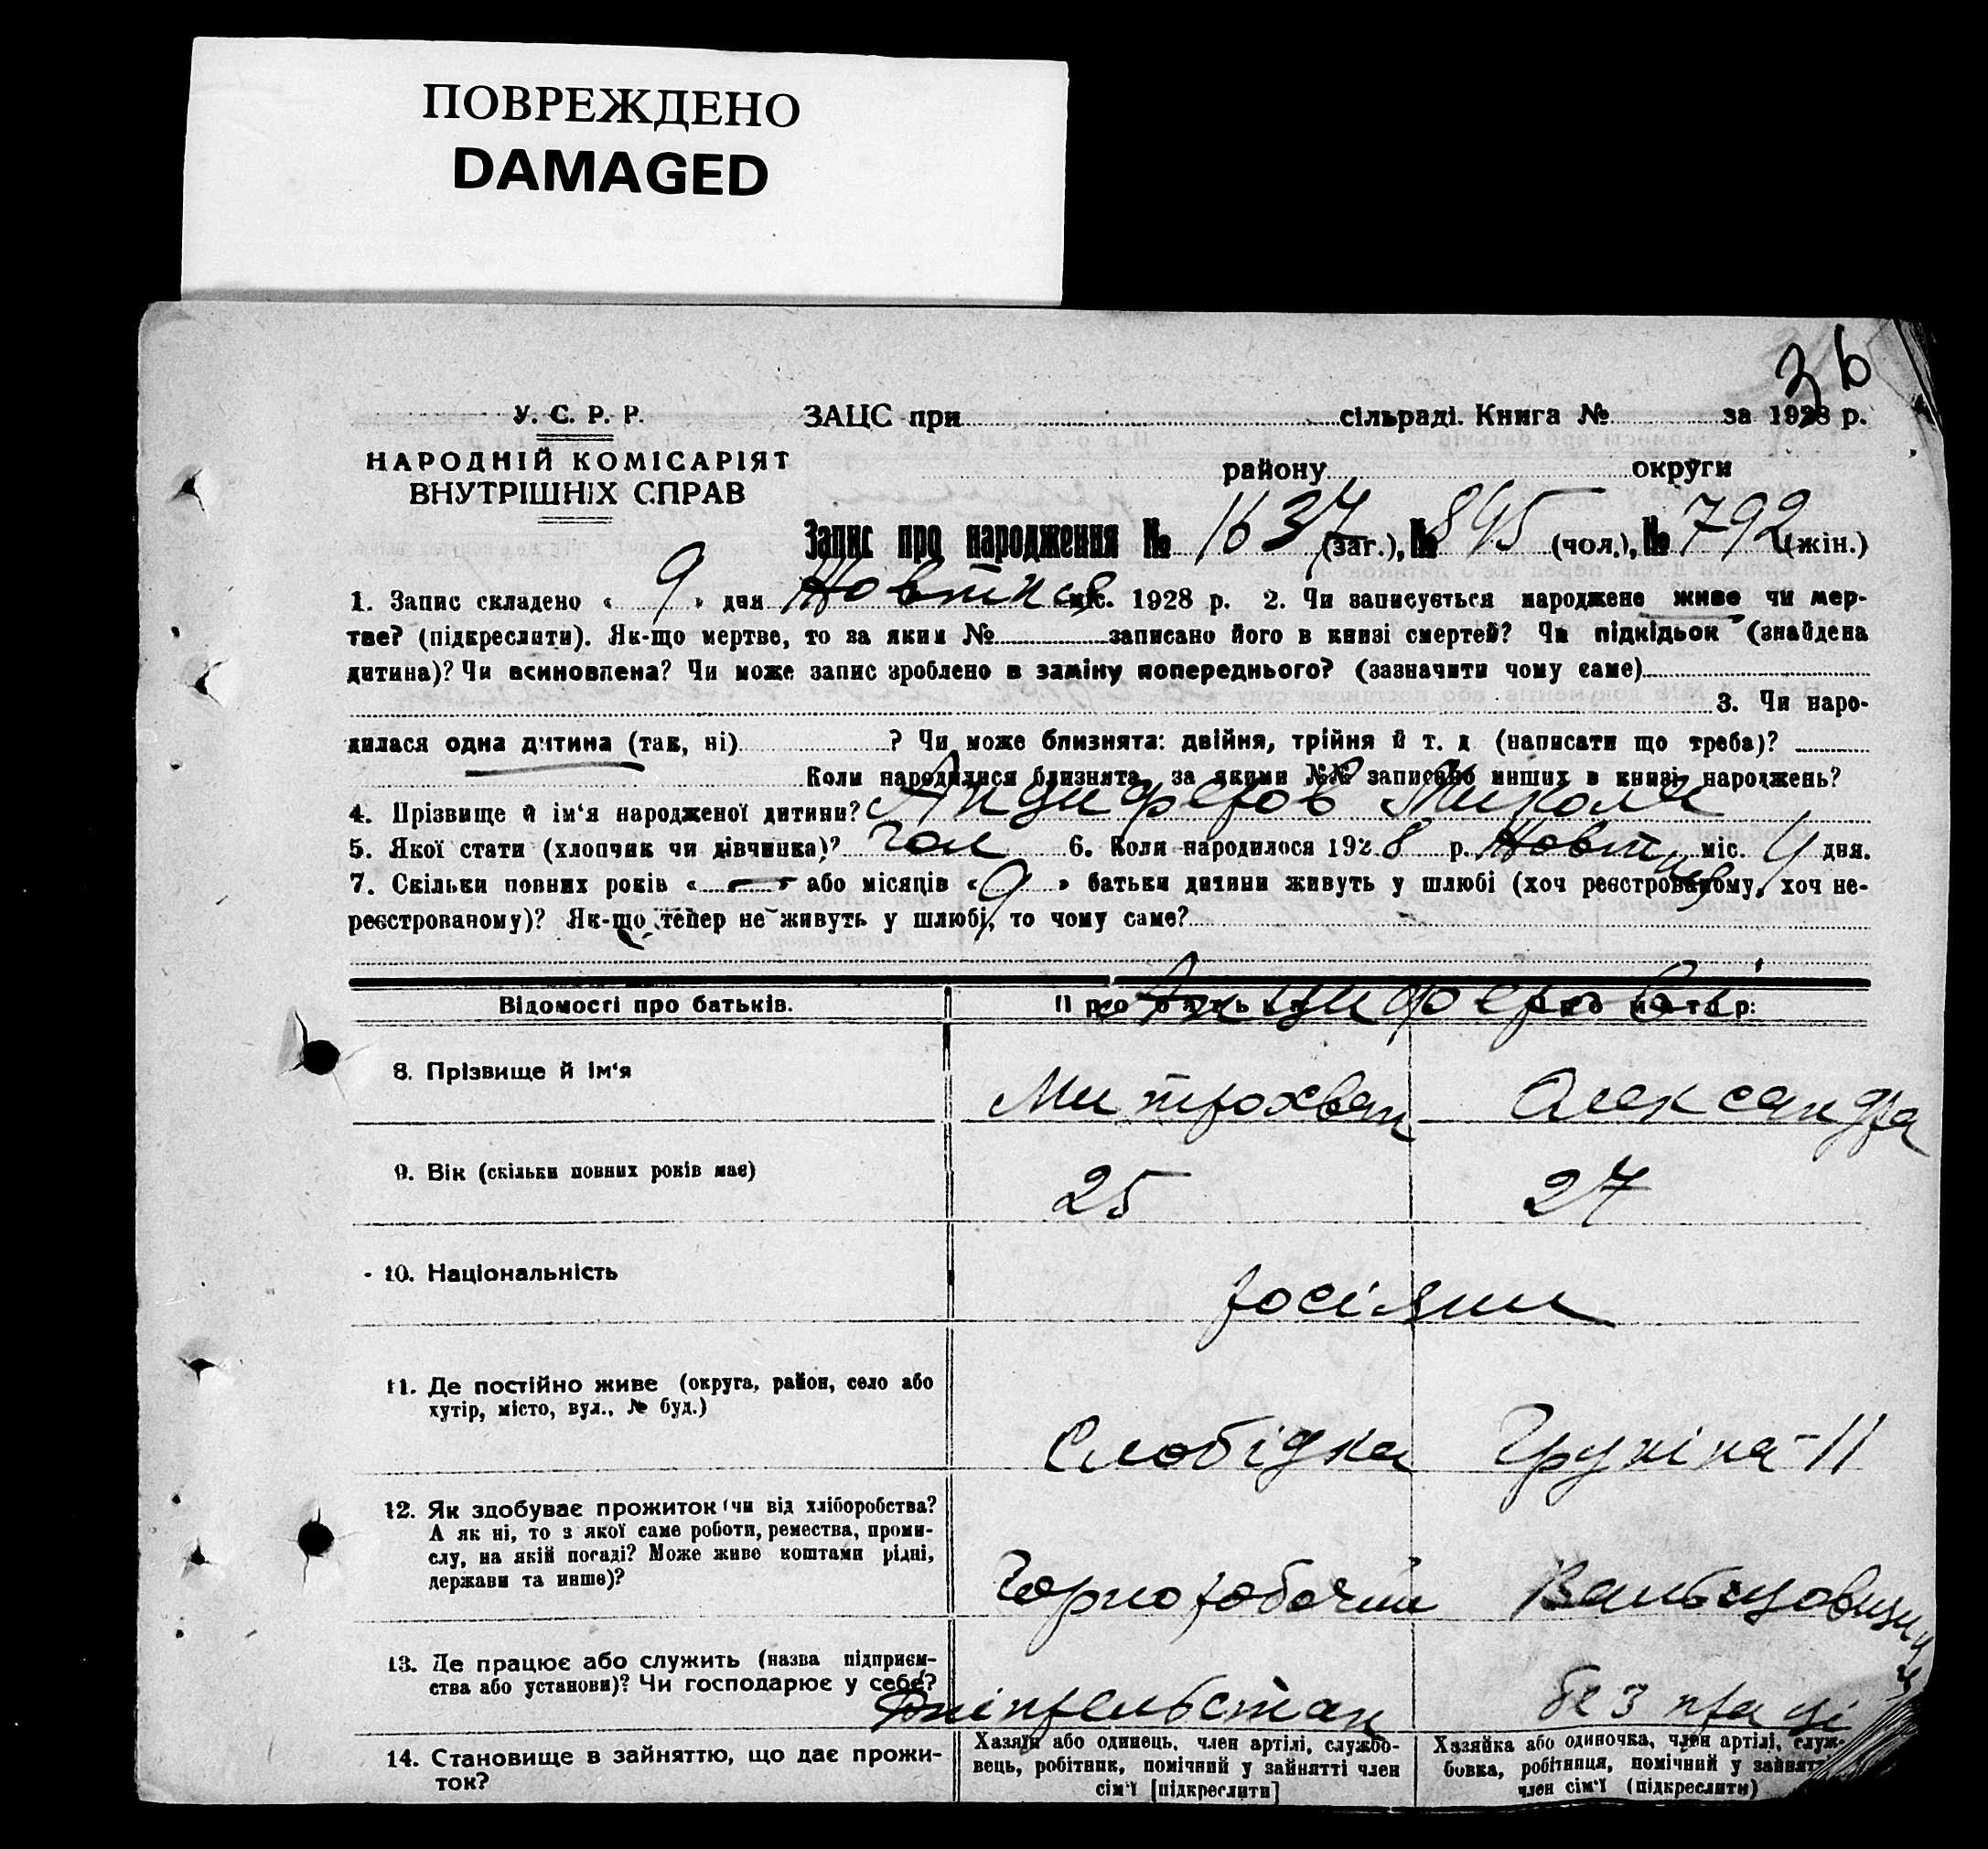 ПОВРЕЖДЕНО
DAMAGED
36
У. С. Р. Р. ЗАЦС при сільраді. Книга № за 1928 р.
НАРОДНІЙ КОМІСАРІЯТ
ВНУТРІШНІХ СПРАВ
району округи
Запис про народження № 1637 (заг.), № 845 (чол.), № 792 (жін.)
1. Запис складено « 9 » дня Жовтня міс. 1928 р. 2. Чи записується народжене живе чи мер-
тве? (підкреслити). Як-що мертве, то за яким № записано його в книзі смертей? Чи підкідьок (знайдена
дитина)? Чи всиновлена? Чи може запис зроблено в заміну попереднього? (зазначити чому саме)
3. Чи наро-
дилася одна дитина (так, ні) ? Чи може близнята: двійня, трійня й т. д (написати що треба)?
Коли народилися близнята, за якими №№ записано инших в книзі народжень?
4. Прізвище й ім'я народженої дитини? Анциферов Микола
5. Якої стати (хлопчик чи дівчинка)? чол 6. Коли народилося 1928 р. Жовтня міс. 4 дня.
7. Скільки повних років « — » або місяців « 9 » батьки дитини живуть у шлюбі (хоч реєстрованому, хоч не-
реєстрованому)? Як-що тепер не живуть у шлюбі, то чому саме?
Відомості про батьків. Про батька Про матір:
Анциферови
8. Прізвище й ім'я Митрохван Олександра
9. Вік (скільки повних років має) 25 27
10. Національність росіяни
11. Де постійно живе (округа, район, село або
хутір, місто, вул., № буд.)
Слобідка -11
12. Як здобуває прожиток (чи від хліборобства?
А як ні, то з якої саме роботи, ремества, проми-
слу, на якій посаді? Може живе коштами рідні,
держави та инше)?
Чорноробочий
13. Де працює або служить (назва підприєм-
ства або установи)? Чи господарює у себе?
без праці
14. Становище в зайняттю, що дає прожи-
ток?
Хазяїн або одинець, член артілі, службо-
вець, робітник, помічний у зайнятті член
сім'ї [підкреслити]
Хазяйка або одиночка, член артілі, служ-
бовка, робітниця, помічний у зайнятті
член сім'ї (підкреслити)